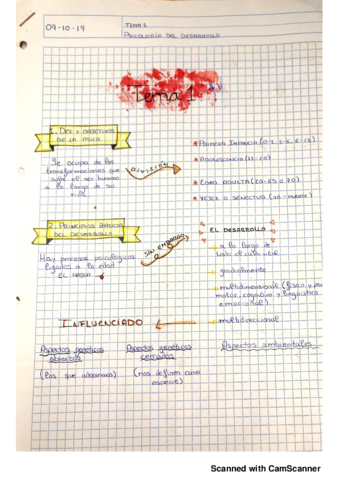 09-10-19
TEMA 1
PSICOLOGÍA DEL DESARROLLO
Tema 1
1. DEF. Y OBJETIVOS
DE LA PSICO.
Se ocupa de las
transformaciones que
sufre el ser humano
a lo largo de su
vida.
DIVISIÓN
* PRIMERA INFANCIA (0-2, 2-6, 6-12)
* ADOLESCENCIA (12-20)
* EDAD ADULTA (20-65 o 70)
* VEJEZ O SENECTUD (70-muerte)
2. PRINCIPIOS BÁSICOS
DEL DESARROLLO
Hay procesos psicológicos
ligados a la edad
SIN EMBARGO
EL DESARROLLO
a lo largo de
todo el ciclo vital
gradualmente
multidimensional (físico y psi
motor, cognitivo y lingüístico
emocional)
multidireccional
INFLUENCIADO
Aspectos genéticos
abiertos
(los que adquirimos)
Aspectos genéticos
cerrados
(nos definen como
especie)
Aspectos ambientales
Scanned with CamScanner